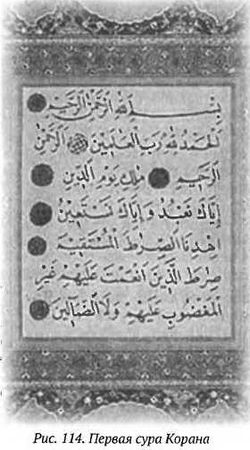 بسم الله الرحمن الرحيم
الحمد لله رب العلمين الرحمن
الرحيم ملك يوم الدين
اياك نعبد واياك نستعين
اهدنا الصرط المستقيم
صرط الذين انعمت عليهم غير
المغضوب عليهم ولا الضالين
Рис. 114. Первая сура Корана